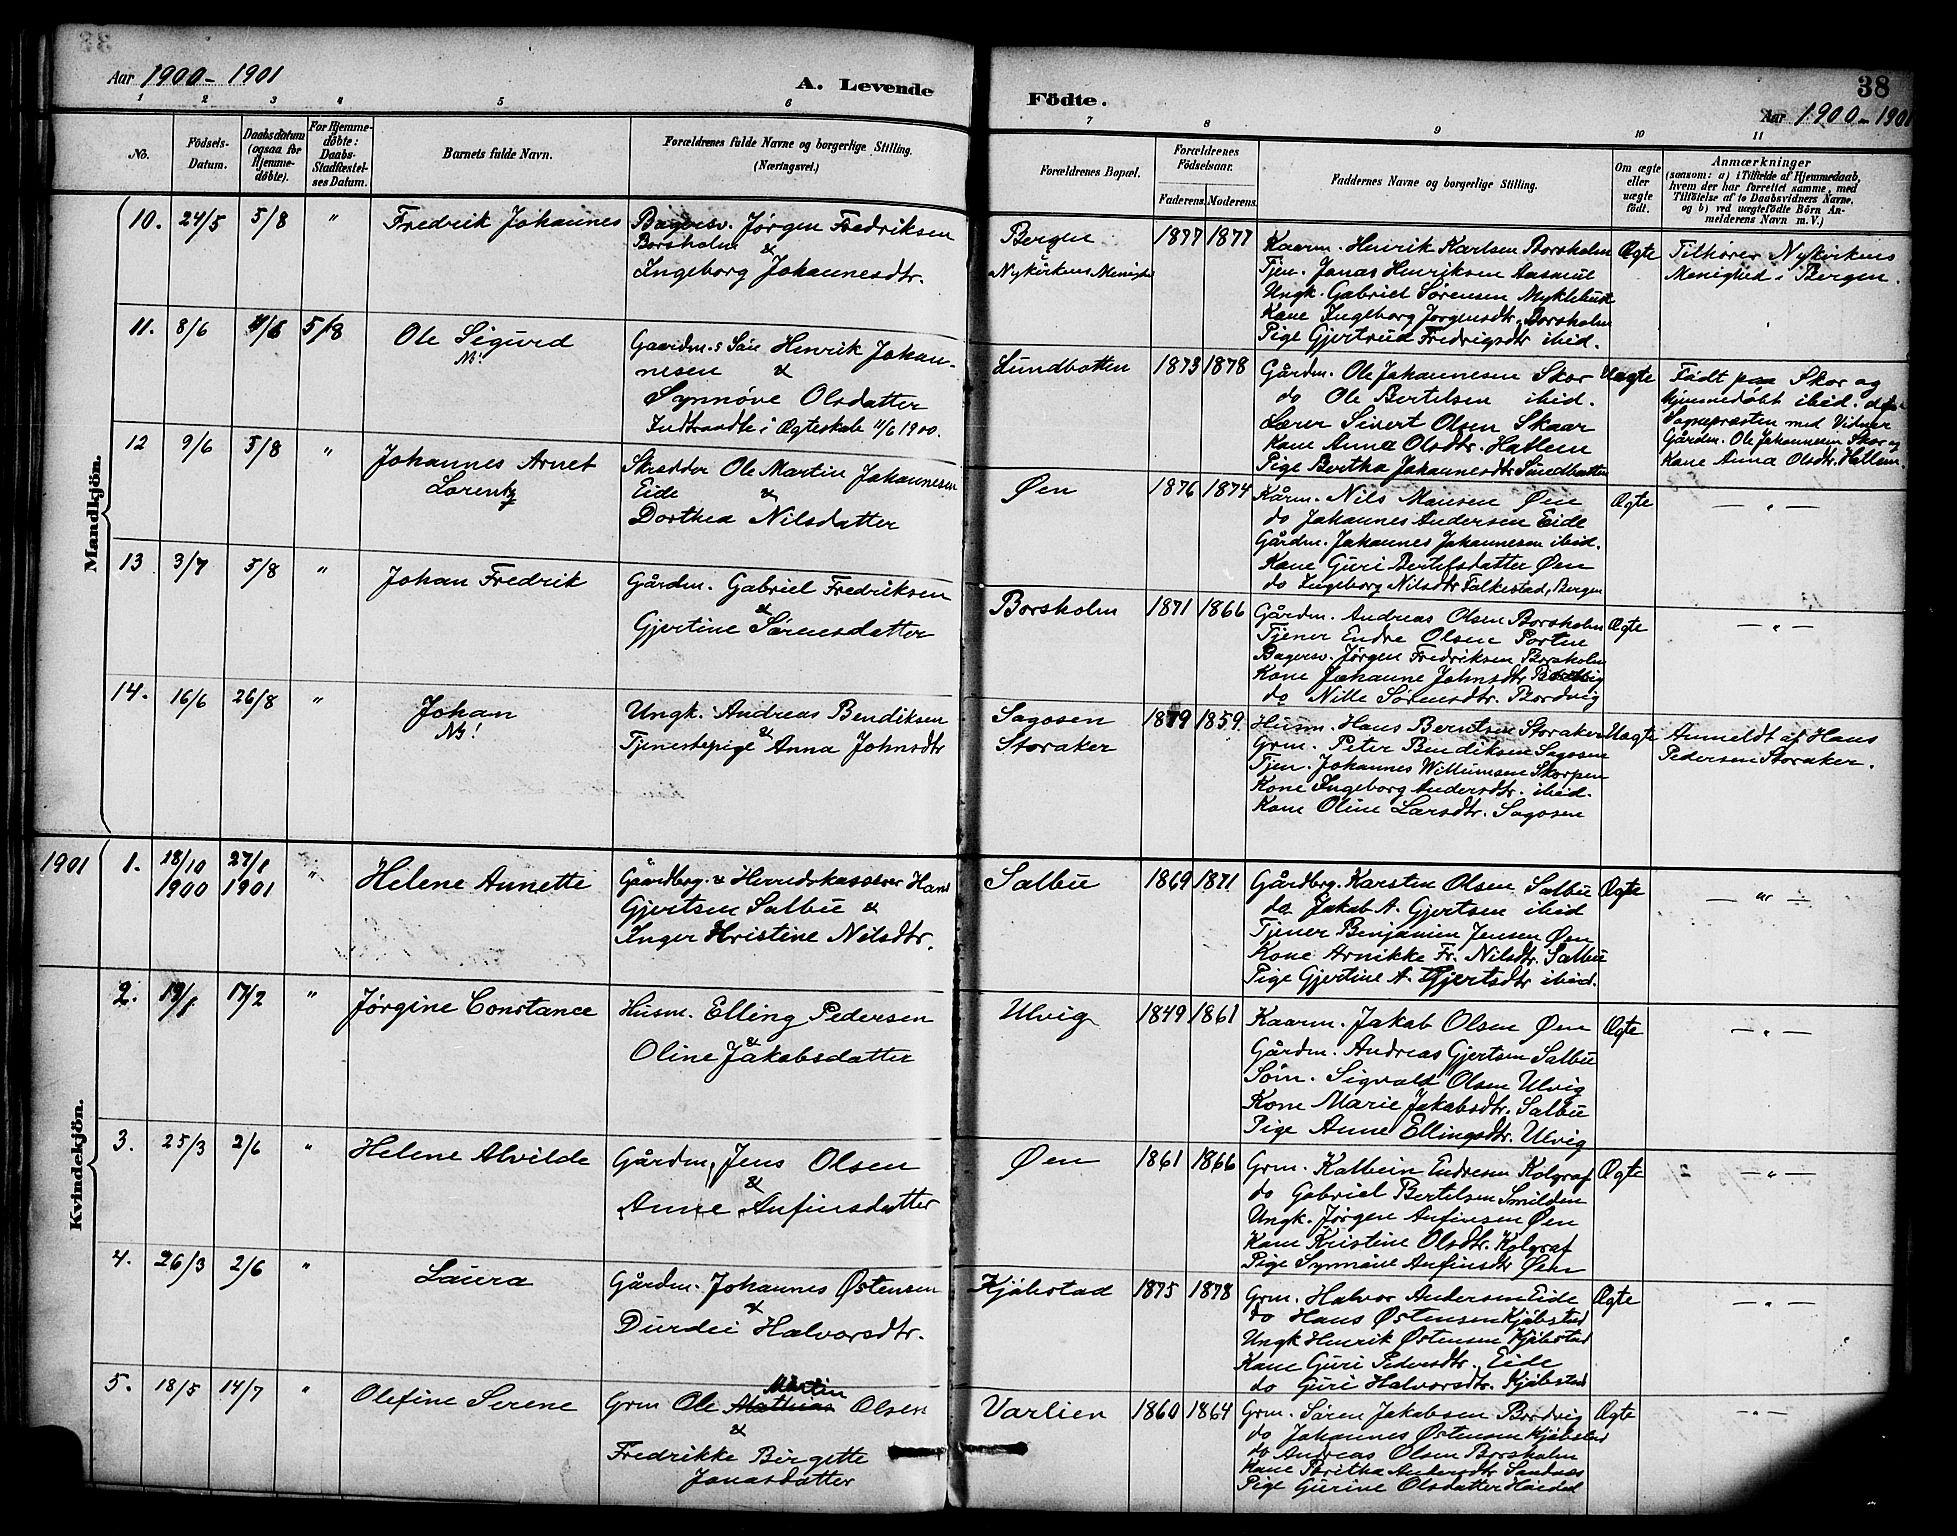 38
Aar 1900-1901
A. Levende
Födte.
Aar 1900-1901
1 2 3 4 5 6 7 8 9 10 11
No.
Födsels-
Datum.
Daabsdatum
(ogsaa for
Hjemme-
döbte).
For Hjemme-
döbte:
Daabs-
Stadfæstel-
ses Datum.
Barnets fulde Navn.
Forældrenes fulde Navne og borgerlige Stilling.
(Næringsvei.)
Forældrenes Bopæl.
Forældrenes
Födselsaar.
Faderens. Moderens.
Faddernes Navne og borgerlige Stilling.
Om ægte
eller
uægte
födt.
Anmærkninger
(saasom: a) i Tilfælde af Hjemmedaab,
hvem der har forrettet samme, med
Tilföielse af to Daabsvidners Navne,
og b) ved uægtefödte Börn An-
melderens Navn m. V.)
Mandkjön.
10. 24/5 5/8 "
Fredrik Johannes
Bagersv. Jørgen Fredriksen
Borsholm &
Ingeborg Johannesdtr.
Bergen
Nykirkens Menighd
1877 1877
Kaarm. Henrik Karlsen Borsholm
Tjen. Jonas Henriksen Aasarue
Ungk. Gabriel Sørensen Myklebust
Kone Ingeborg Jørgensdtr. Borsholm
Pige Gjertrud Fredrigsdtr ibid.
Ægte
Tilhører Nykirkens
Menighed i Bergen.
11. 8/6 11/6 5/8
Ole Sigurd
NB!
Gaardm.s Søn Henrik Johan-
nesen &
Synnøve Olsdatter
Indtraadte i Ægteskab 11/6 1900.
Lundbotten
1873 1878
Gårdm. Ole Johannesen Skor
do Ole Bertelsen ibid.
Lærer Sivert Olsen Skaar
Kone Anna Olsdtr. Hatlem
Pige Bertha Johannesdtr. Lundbotten
Uægte
Født paa Skor og
hjemmedøbt ibid. af
Sognepresten med Vidner
Gårdm. Ole Johannesen Skor og
Kone Anna Olsdtr. Hatlem.
12 9/6 5/8 "
Johannes Arnet
Lorentz
Skrædder Ole Martin Johannesen
Eide &
Dorthea Nilsdatter
Øen
1876 1874
Kårm. Nils Monsen Øen
do Johannes Andersen Eide
Gårdm. Johannes Johannesen ibid.
Kone Guri Bertelsdatter Øen
do Ingeborg Nilsdtr Falkestad, Bergen
Ægte
— " —
13 3/7 5/8 "
Johan Fredrik
Gårdm. Gabriel Fredriksen
&
Gjertine Sørensdatter
Borsholm
1871 1866
Gårdm. Andreas Olsen Borsholm
Tjener Endre Olsen Porten
Bagersv. Jørgen Fredriksen Borsholm
Kone Johanne Johnsdtr. Bordvig
do Nille Sørensdtr. Bordvig
Ægte
— " —
14. 16/6 26/8 "
Johan
NB!
Ungk. Andreas Bendiksen
&
Tjenestepige Anna Johnsdtr
Sagosen
Storaker
1879 1859.
Husm. Hans Berntsen Storaker
Grm. Peter Bendiksen Sagosen
Tjen. Johannes Willumsen Skorpen
Kone Ingeborg Andersdtr. ibid.
Kone Oline Larsdtr. Sagosen
Uægte
Anmeldt af Hans
Pedersen Storaker.
Kvindekjön.
1901
1. 18/10 1900 27/1 1901 "
Helene Annette
Gårdbrg. & Herredskasserer Hans
Gjertsen Salbu &
Inger Kristine Nilsdtr.
Salbu
1869 1871
Gårdbrg. Karsten Olsen Salbu
do Jakob A. Gjertsen ibid
Tjener Benjamin Jensen Øen
Kone Arnikke Fr. Nilsdtr. Salbu
Pige Gjertine A. Gjertsdtr ibid.
Ægte
— " —
2. 19/1 17/2 "
Jørgine Constance
Husm. Elling Pedersen
&
Oline Jakobsdatter
Ulvig
1849 1861
Kaarm. Jakob Olsen Øen
Gårdm. Andreas Gjertsen Salbu
Søm. Sigvald Olsen Ulvig
Kone Marie Jakobsdtr. Salbu
Pige Anne Ellingsdtr. Ulvig
Ægte
— " —
3. 25/3 2/6 "
Helene Alvilde
Gårdm. Jens Olsen
&
Anne Anfinsdatter
Øen
1861 1866
Grm. Kolbein Endresen Kolgraf
do Gabriel Bertelsen Smilden
Ungk. Jørgen Anfinsen Øen
Kone Kristine Olsdtr. Kolgraf
Pige Synnøve Anfinsdtr Øen
Ægte
— " —
4. 26/3 2/6 "
Laura
Gårdm. Johannes Østensen
&
Durdei Halvorsdtr.
Kjøbstad
1875 1878
Grm. Halvor Andersen Eide
do Hans Østensen Kjøbstad
Ungk Henrik Østensen Kjøbstad
Kone Guri Pedersdtr. Eide
do Guri Halvorsdtr. Kjøbstad
Ægte
— " —
5. 18/5 14/7 "
Olefine Serene
Martin
Grm Ole Mathias Olsen
&
Fredrikke Birgitte
Jonasdatter
Varlien
1860 1864
Grm. Søren Jakobsen Bordvig
do Johannes Østensen Kjøbstad
do Andreas Olsen Borsholm
Kone Britha Andersdtr Sandnes
Pige Gurine Olsdatter
Ægte
— " —